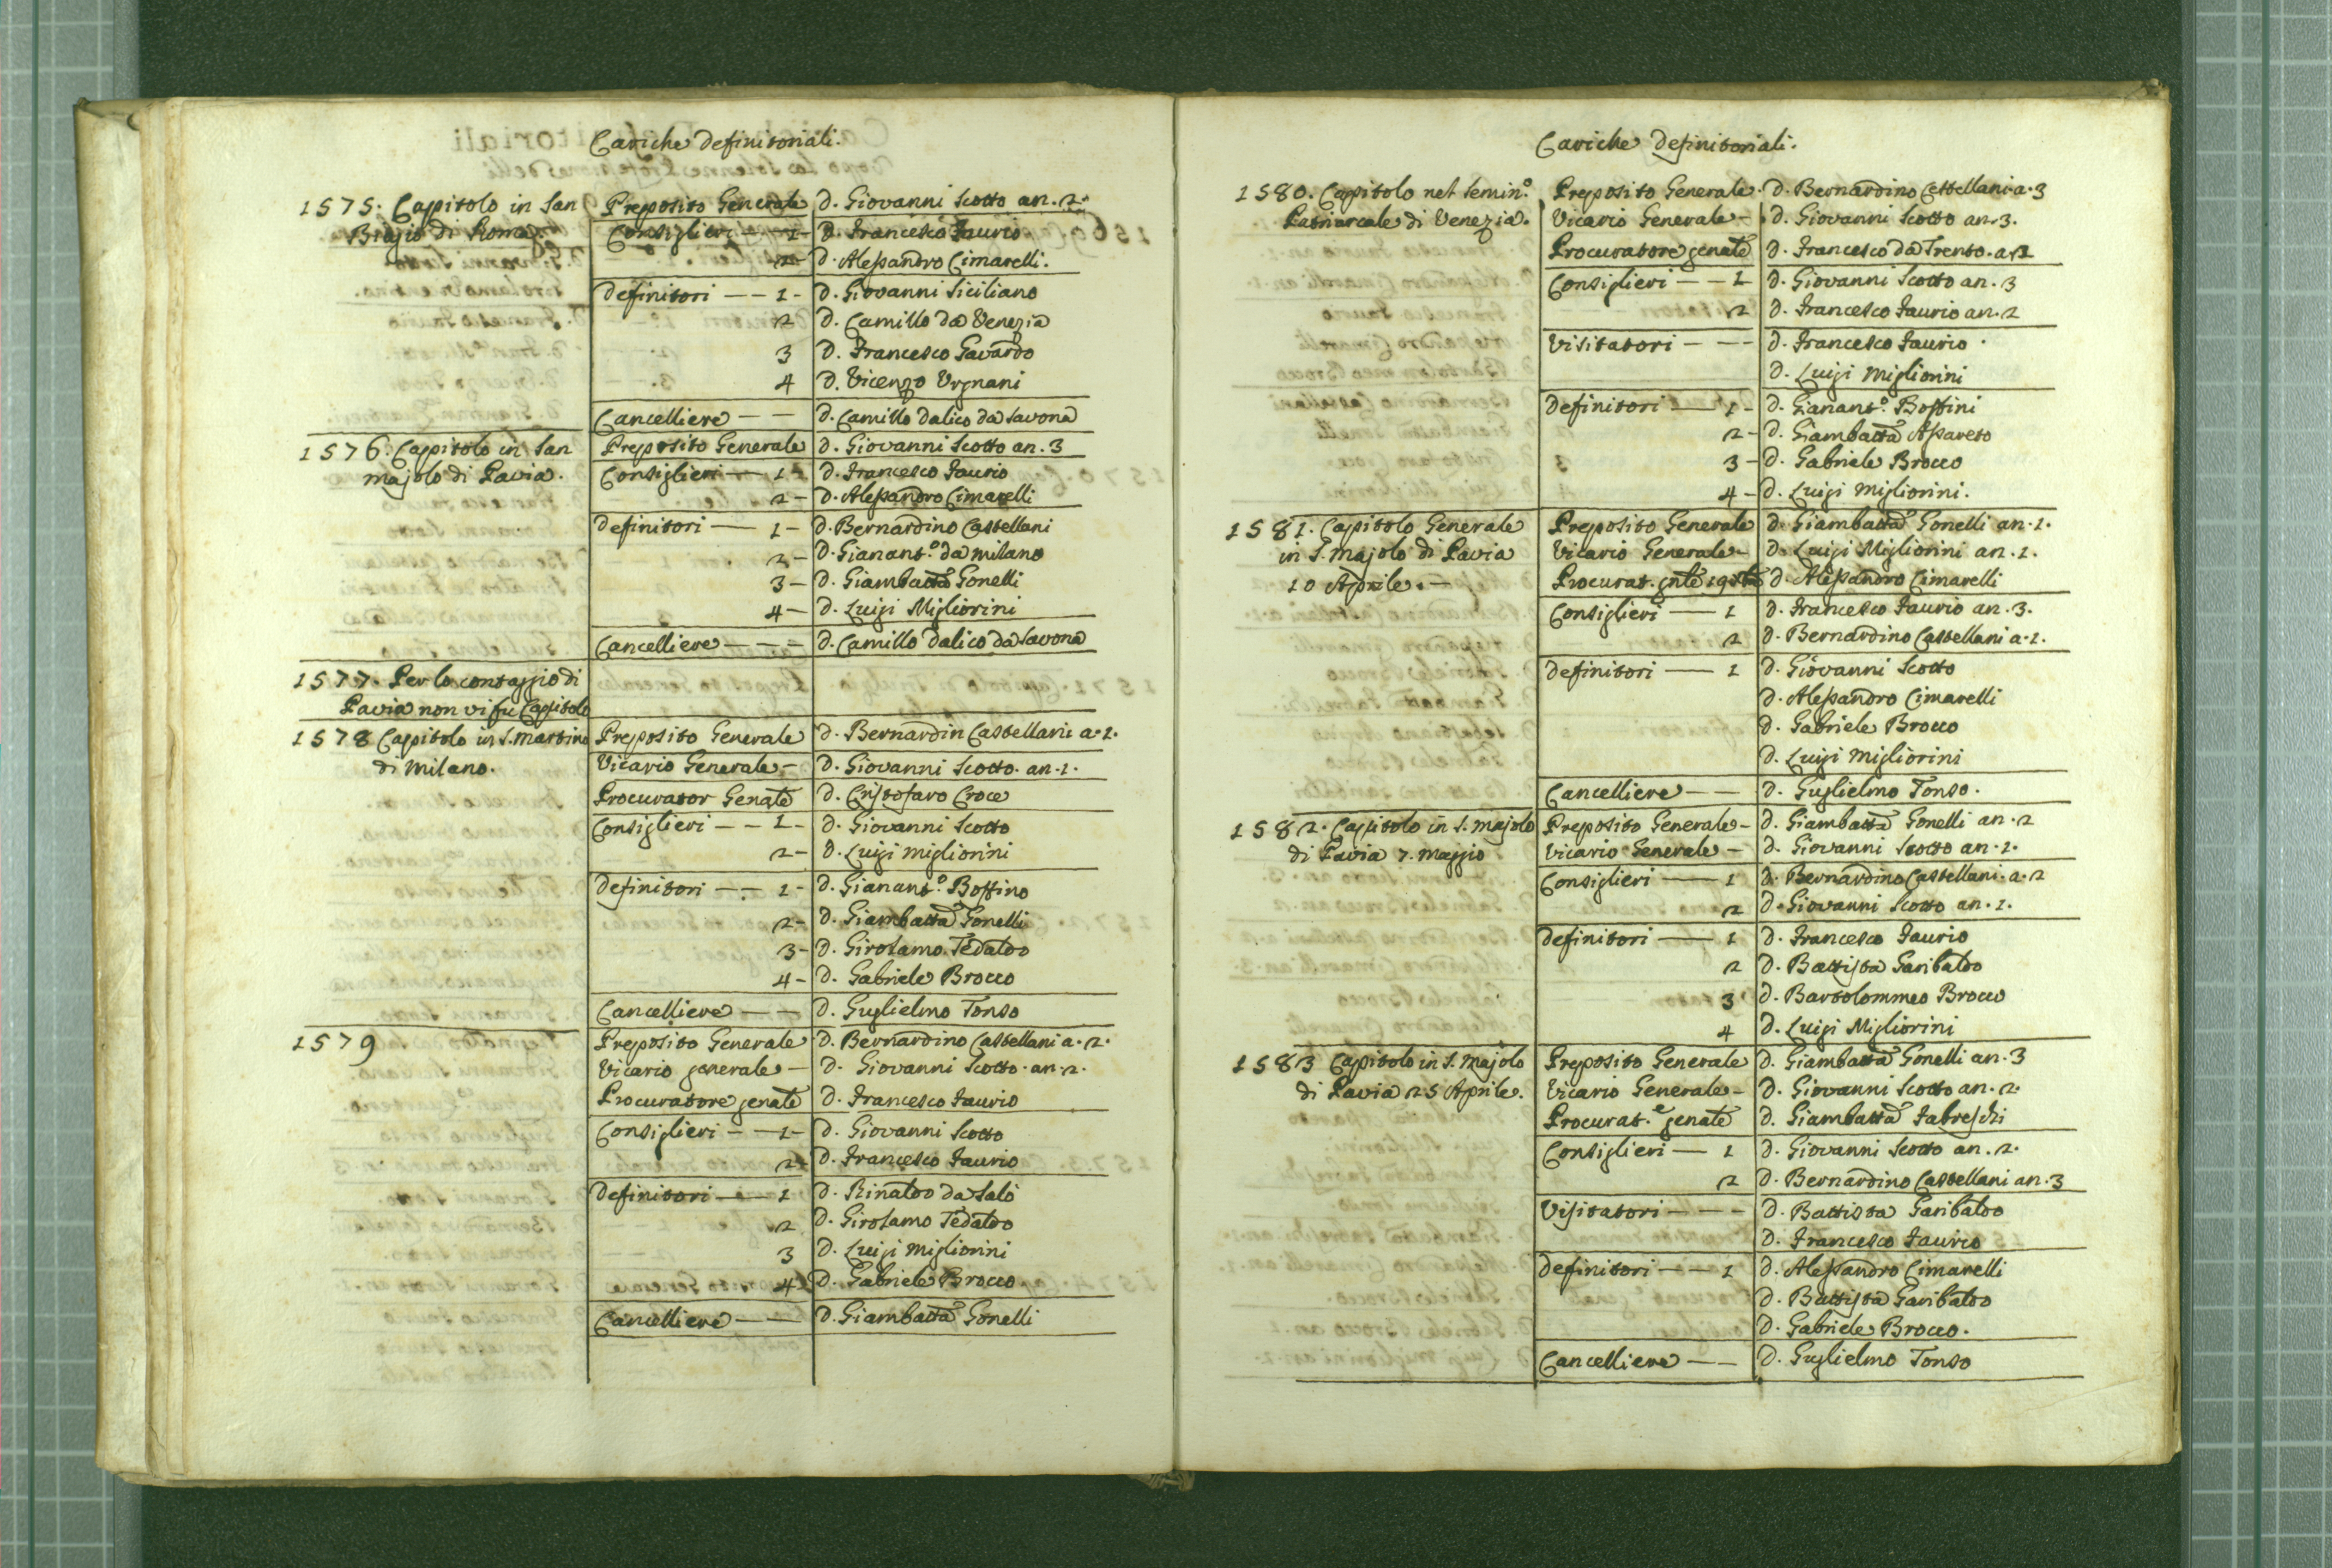 Cariche Definitoriali.
1575. Capitolo in San Preposito Generale D. Giovanni Scotto an. 2.
Biagio di Roma. Consiglieri — 1 - D. Francesco Faurio
2 - D. Alessandro Cimarelli.
Definitori — — 1 - D. Giovanni Siciliano
2 D. Camillo da Venezia
3 D. Francesco Gavardo
4 D. Vicenzo Urgnani
Cancelliere — — D. Camillo Dalico da Savona
1576. Capitolo in San Preposito Generale D. Giovanni Scotto an. 3
Majolo di Pavia. Consiglieri — 1 - D. Francesco Faurio
2 - D. Alessandro Cimarelli
Definitori — 1 - D. Bernardino Castellani
2 - D. Gianant.º da Milano
3 - D. Giambatta Gonelli
4 - D. Luigi Migliorini
Cancelliere — — — D. Camillo Dalico da Savona
1577. Per lo contaggio di
Pavia non vi fu Capitolo
1578 Capitolo in S. Martino Preposito Generale D. Bernardin Castellani a. 1.
di Milano. Vicario Generale - D. Giovanni Scotto. an. 1.
Procurator Genale D. Cristofaro Croce
Consiglieri — — 1 - D. Giovanni Scotto
2 - D. Luigi Migliorini
Definitori — — 1 - D. Gianant.º Boffino
2 - D. Giambatta Gonelli
3 - D. Girolamo Tedaldo
4 - D. Gabriele Brocco
Cancelliere — — D. Guglielmo Tonso
1579 Preposito Generale D. Bernardino Castellani a. 2.
Vicario generale - D. Giovanni Scotto. an. 2.
Procuratore genale D. Francesco Faurio
Consiglieri — — 1 - D. Giovanni Scotto
2 - D. Francesco Faurio
Definitori — — 1 D. Rinaldo da Salò
2 D. Girolamo Tedaldo
3 D. Luigi Migliorini
4 D. Gabriele Brocco
Cancelliere — — D. Giambatta Gonelli
Cariche Definitoriali.
1580. Capitolo nel Semin.º Preposito Generale. D. Bernardino Castellani. a. 3
Patriarcale di Venezia. Vicario Generale - D. Giovanni Scotto an. 3.
Procuratore genale D. Francesco da Trento. a.
Consiglieri — — 1 D. Giovanni Scotto an. 3
2 D. Francesco Faurio an. 2
Visitatori — — — D. Francesco Faurio.
D. Luigi Migliorini
Definitori — 1 - D. Gianant.º Boffini
2 - D. Giambatta Assareto
3 - D. Gabriele Brocco
4 - D. Luigi Migliorini.
1581. Capitolo Generale Preposito Generale D. Giambatta Gonelli an. 1.
in S. Majolo di Pavia Vicario Generale - D. Luigi Migliorini an. 1.
10 Aprile. — Procurat. gnle D. Alessandro Cimarelli
Consiglieri — 1 D. Francesco Faurio an. 3.
2 D. Bernardino Castellani a. 1.
Definitori — 1 D. Giovanni Scotto
D. Alessandro Cimarelli
D. Gabriele Brocco
D. Luigi Migliorini
Cancelliere — — D. Guglielmo Tonso.
1582. Capitolo in S. Majolo Preposito Generale - D. Giambatta Gonelli an. 2
di Pavia 7. Maggio Vicario Generale - D. Giovanni Scotto an. 1.
Consiglieri — 1 D. Bernardino Castellani. a. 2
2 D. Giovanni Scotto an. 1.
Definitori — 1 D. Francesco Faurio
2 D. Battista Garibaldo
3 D. Bartolommeo Brocco
4 D. Luigi Migliorini
1583 Capitolo in S. Majolo Preposito Generale D. Giambatta Gonelli an. 3
di Pavia 25 Aprile. Vicario Generale - D. Giovanni Scotto an. 2.
Procurat.e genale D. Giambatta Fabreschi
Consiglieri — 1 D. Giovanni Scotto an. 2.
2 D. Bernardino Castellani an. 3
Visitatori — — — D. Battista Garibaldo
D. Francesco Faurio
Definitori — — 1 D. Alessandro Cimarelli
D. Battista Garibaldo
D. Gabriele Brocco.
Cancelliere — — D. Guglielmo Tonso